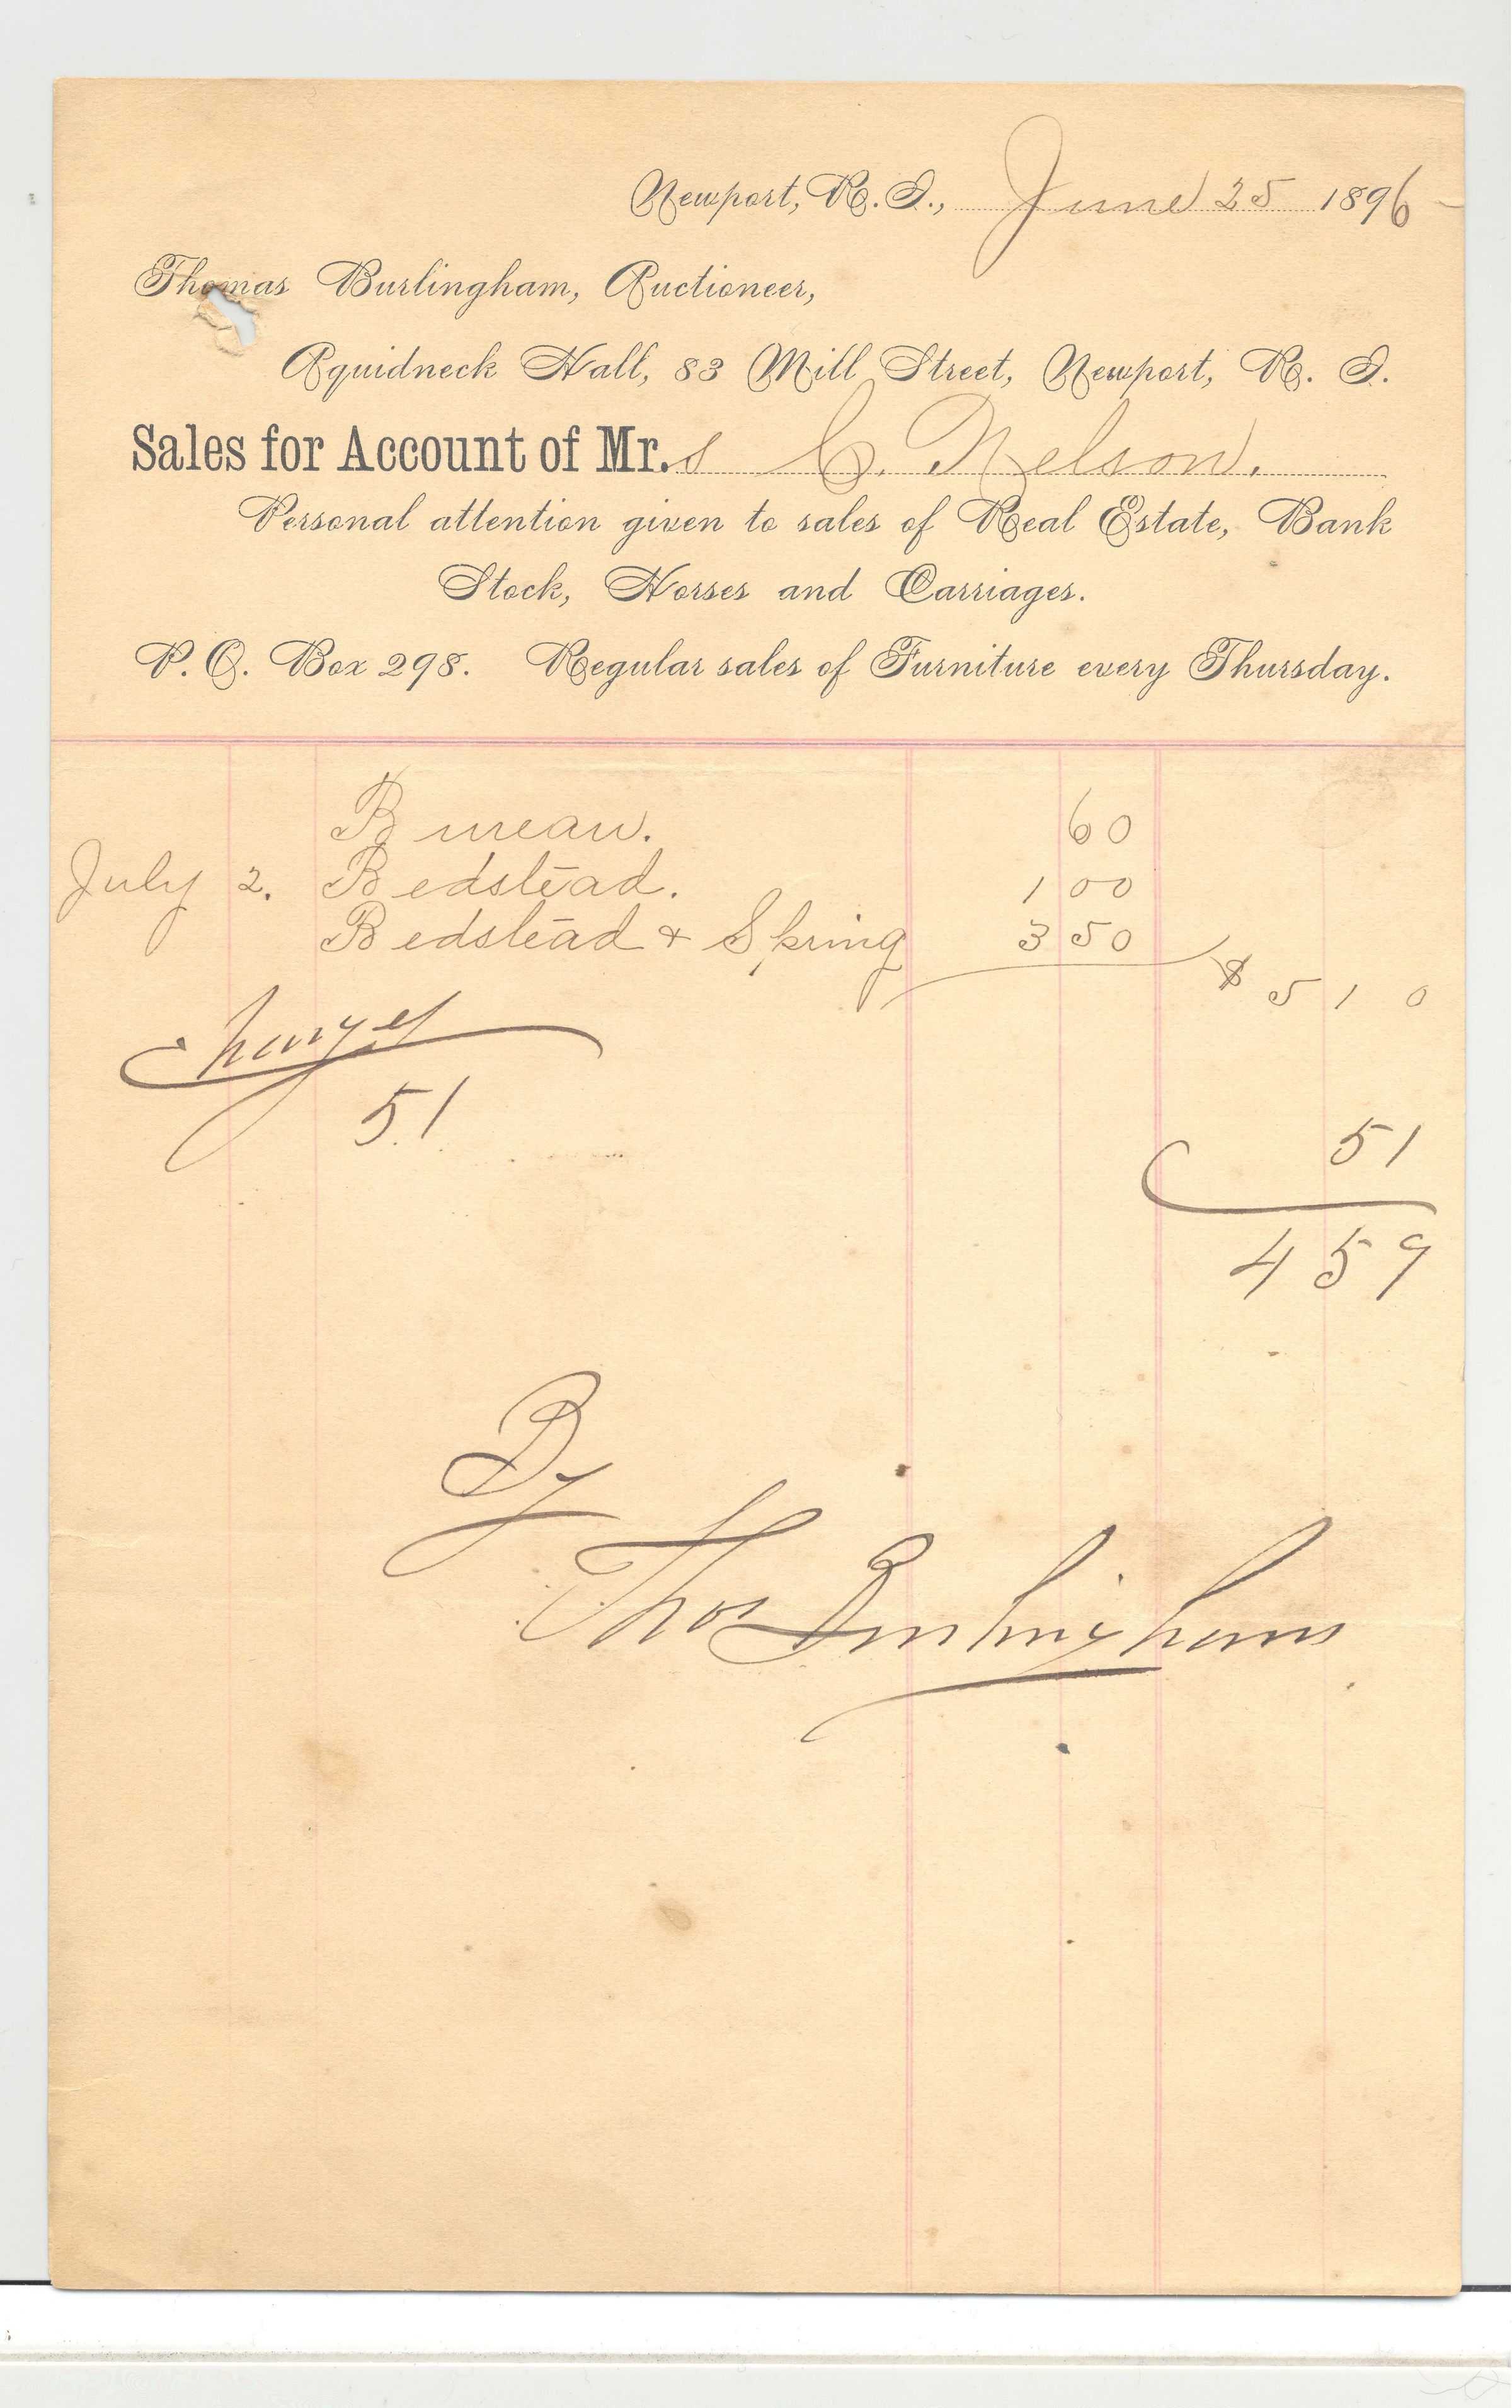 Newport, R. I., June 25 1896
Thomas Burlingham, Auctioneer,
Aquidneck Hall, 83 Mill Street, Newport, R. I.
Sales for Account of Mr.s C. Nelson.
Personal attention given to sales of Real Estate, Bank
Stock, Horses and Carriages.
P. O. Box 298. Regular sales of Furniture every Thursday.
Bureau. 60
July 2. Bedstead. 1 00
Bedstead & Spring 3 50
$ 5 1 0
Charges
51
51
4 59
By
Thos Burlingham